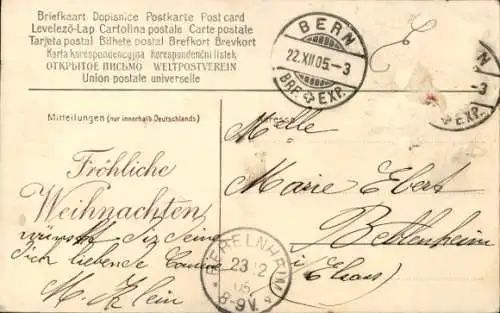 Briefkaart Dopisnice Postkarte Post card
Levelező-Lap Cartolina postale Carte postale
Tarjeta postal Bilhete postal Brefkort Brevkort
Karta korespondencyjna Korespondenční lístek
ОТКРЫТОЕ ПИСЬМО WELTPOSTVEREIN
Union postale universelle
BERN
22.XII.05.-3
BRF. EXP.
N
-3
EXP.
Mitteilungen (nur innerhalb Deutschlands)
Adresse
Melle
Marie Ebert
Beblenheim
i/ Elsass
Fröhliche
Weihnachten
wünscht Dir Deine
Dich liebende
M. Klein
23 12
05
8-9V.